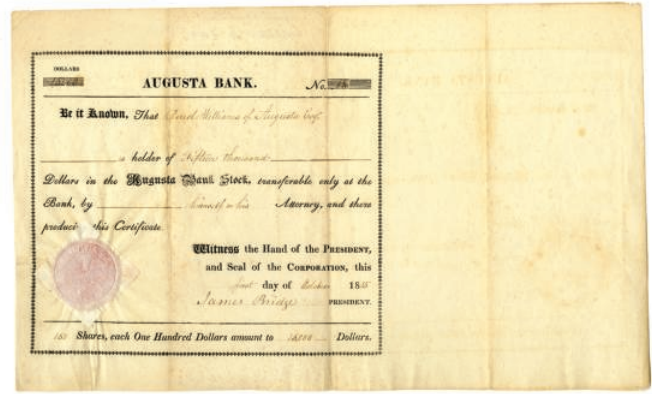 DOLLARS
15000
AUGUSTA BANK.
No.
Be it Known, That Williams of Augusta Esqr
a holder of Fifteen thousand
Dollars in the Augusta Bank Stock, transferable only at the
Bank, by himself or his Attorney, and there
produc this Certificate.
Witness the Hand of the PRESIDENT,
and Seal of the CORPORATION, this
first day of October 18
James Bridge PRESIDENT.
150 Shares, each One Hundred Dollars amount to 15000 Dollars.